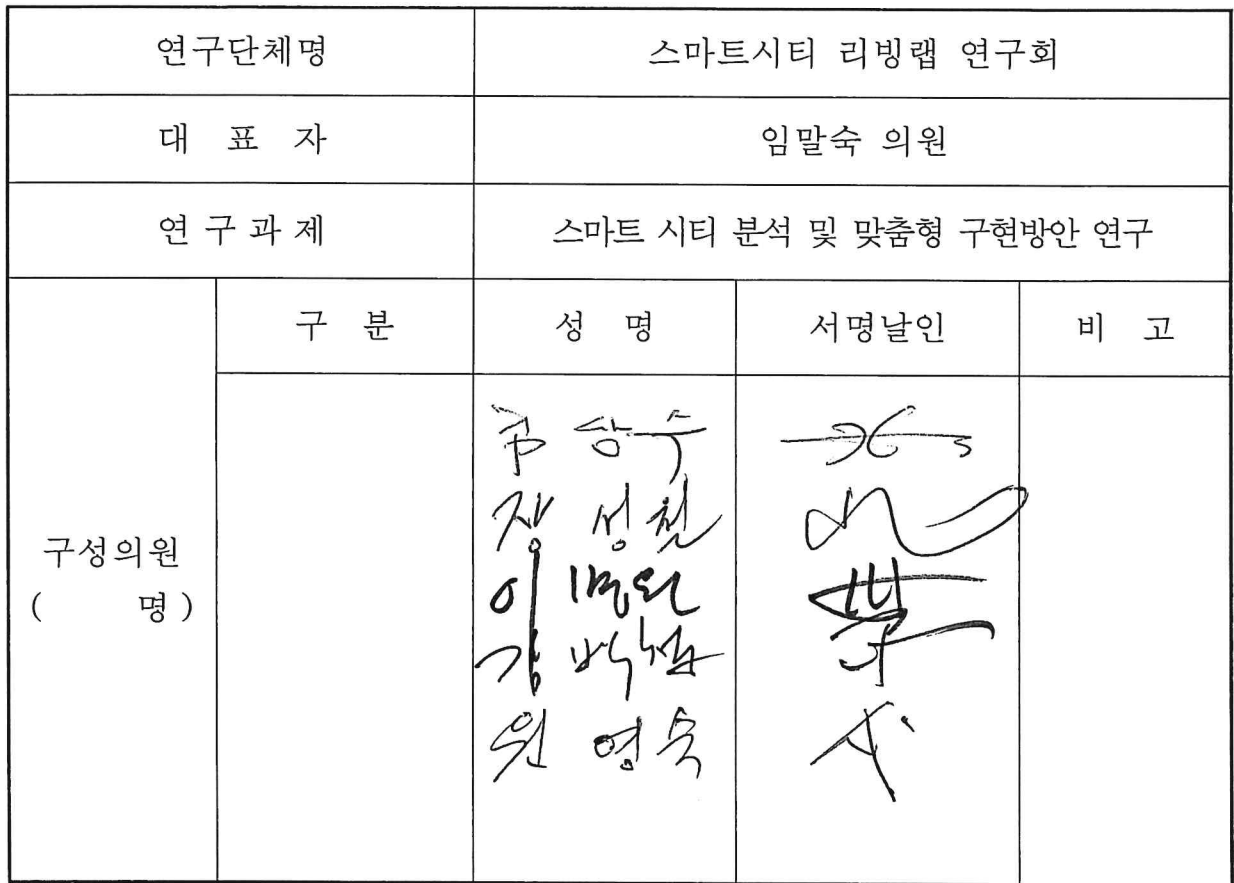 연구단체명 스마트시티 리빙랩 연구회
대 표 자 임말숙 의원
연 구 과 제 스마트 시티 분석 및 맞춤형 구현방안 연구
구성의원
( 명 )
구 분 성 명 서명날인 비 고
상수
장성철
이명원
원영숙